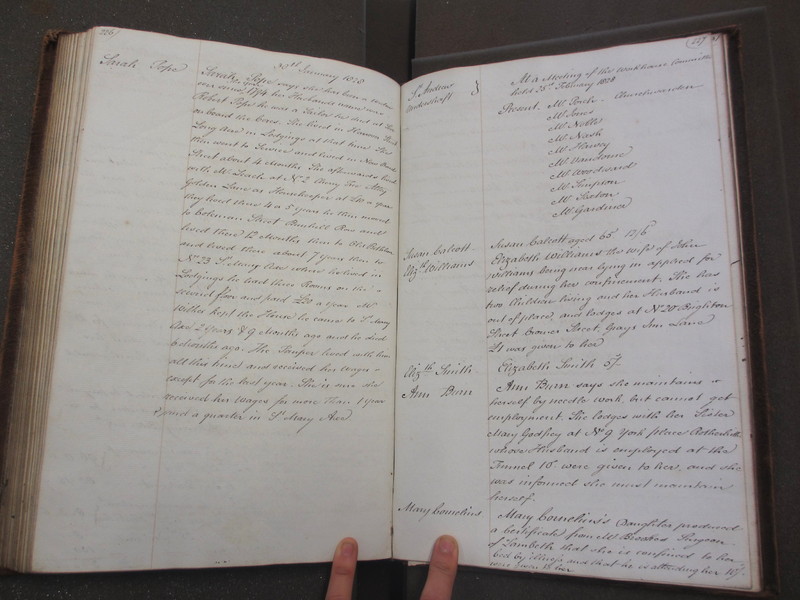 226
30th January 1828
Sarah Pope
Sarah Pope says she has been a widow
ever since 1774 her Husband's name was
Robert Pope he was a Tailor he died at Sea
on board the
Long Acre in Lodgings at that time She
then went to Service and lived in New Bond
Street about 4 Months She afterwards lived
with Mr Leach at No 2 Cherry Tree Alley
Golden Lane as Housekeeper at £10 a year
they lived there 4 a 5 years he then moved
to Coleman Street Bunhill Row and
lived there 12 Months then to Old Bethlem
and lived there about 7 years then to
No 23 St Mary Axe where he lived in
Lodgings he had three Rooms on the
second floor and paid £20 a year Mr
kept the House he came to St Mary
Axe 2 Years & 9 Months ago and he died
Months ago. The Pauper lived with him
all this time and received her wages
except for the last year. She is sure she
received her Wages for more than 1 year
and a quarter in St Mary Axe
227
St Andrew
Undershaft
At a Meeting of the Workhouse Committee
held February 1828
Present Mr Churchwarden
Mr Jones
Mr
Mr Nash
Mr Harvey
Mr Vansomer
Mr Woodward
Mr Simpson
Mr Sexton
Mr Gardiner
Susan Calcott
Susan Calcott aged 65 12/6
Elizth Williams
Elizabeth Williams the wife of John
Williams being near lying in applied for
relief during her confinement. She has
two Children living and her Husband is
out of place, and lodges at No 20 Brighton
Street Cromer Street, Grays Inn Lane
£1 was given to her
Elizth Smith
Elizabeth Smith 5/-
Ann Bum
Ann Bum says she maintains
herself by needle work, but cannot get
employment. She lodges with her Sister
Mary Godfrey at No 9 York place Rotherhithe
whose Husband is employed at the
Tunnel 10/ were given to her, and she
was informed she must maintain
herself.
Mary Cornelius
Mary Cornelius's Daughter produced
a certificate from Mr Surgeon
of Lambeth that she is confined to her
bed by illness and that he is attending her 10/-
were given to her